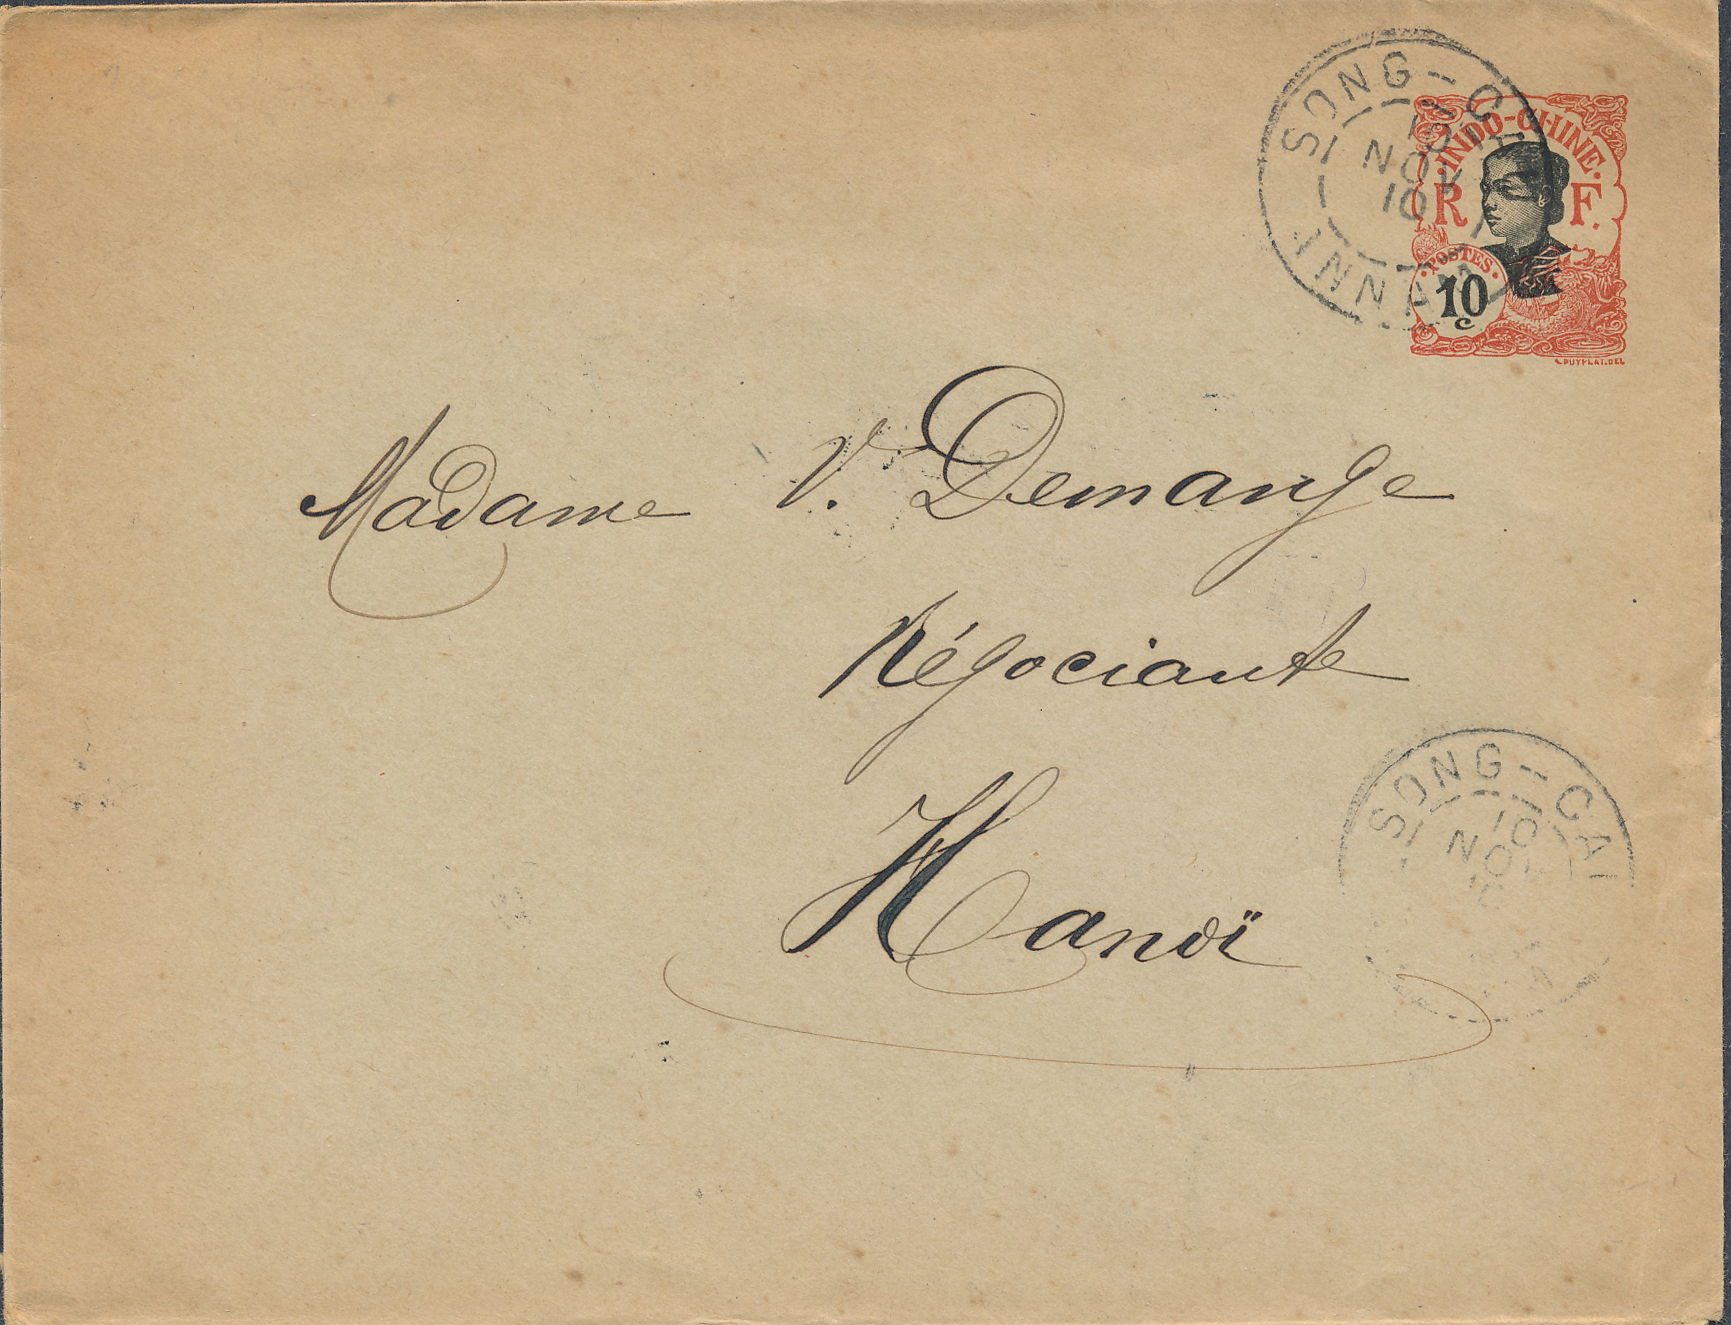 SONG-CAI
10
NOV
10
ANNAM
INDO-CHINE
R F.
POSTES
10
c
PUYPLAT.DEL
Madame V. Demange
Négociante
Hanoï
SONG-CAI
10
NOV